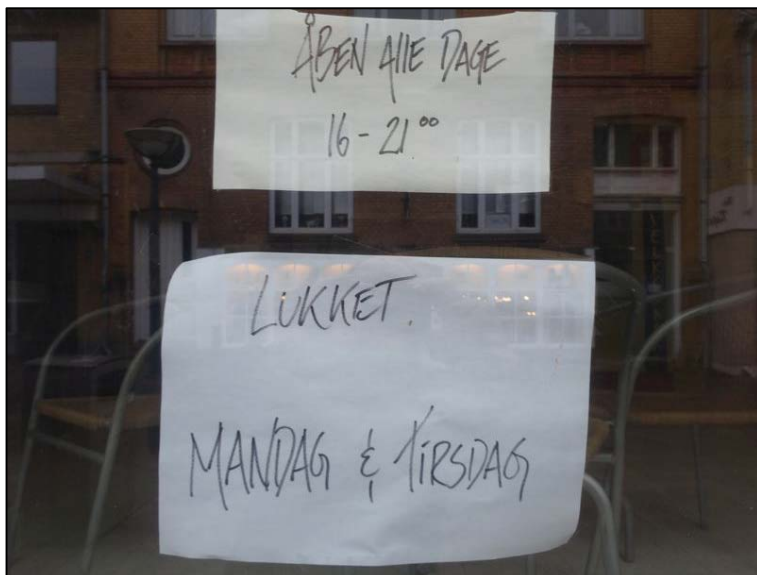 ÅBEN AllE DAGE
16 - 21⁰⁰
LUKKET.
MANDAG & TiRSDAG